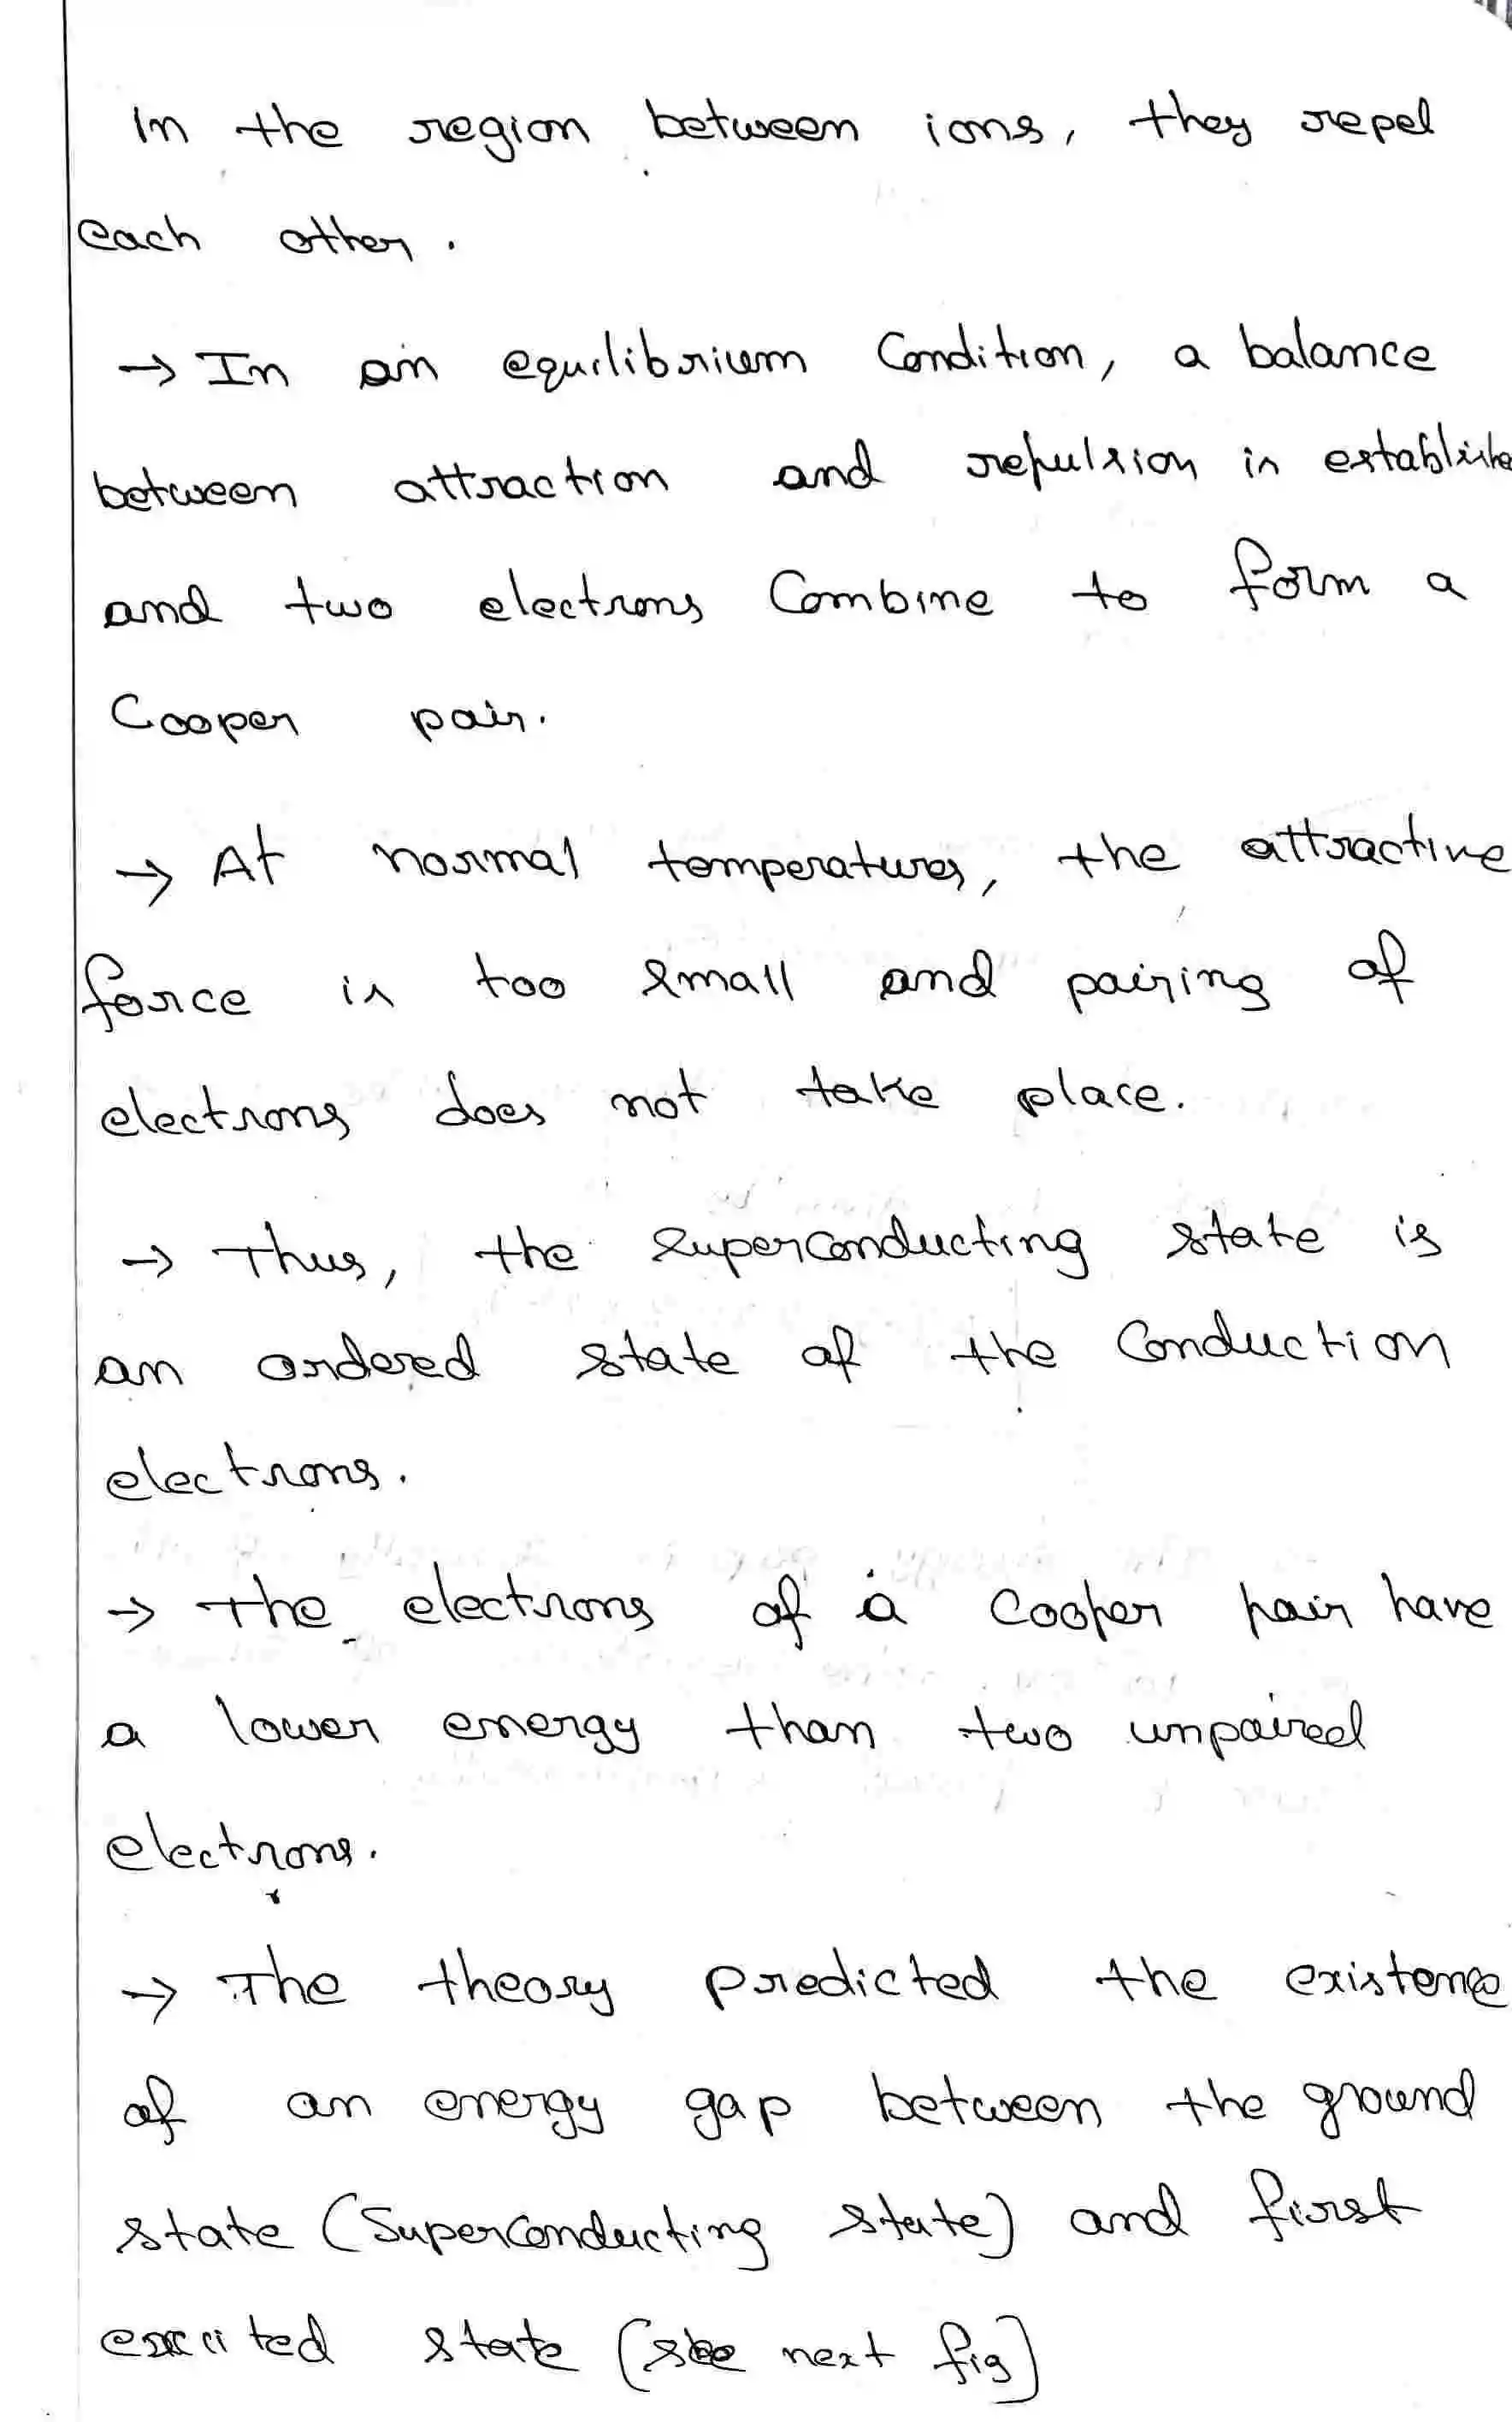 In the region between ions, they repel
each other.
→ In an equilibrium Condition, a balance
between attraction and repulsion is establishe
and two electrons Combine to form a
Cooper pair.
→ At normal temperatures, the attractive
force is too small and pairing of
electrons does not take place.
→ Thus, the superconducting state is
an ordered state of the Conduction
electrons.
→ The electrons of a Cooper pair have
a lower energy than two unpaired
electrons.
→ The theory predicted the existence
of an energy gap between the ground
state (Superconducting state) and first
excited state (see next fig)